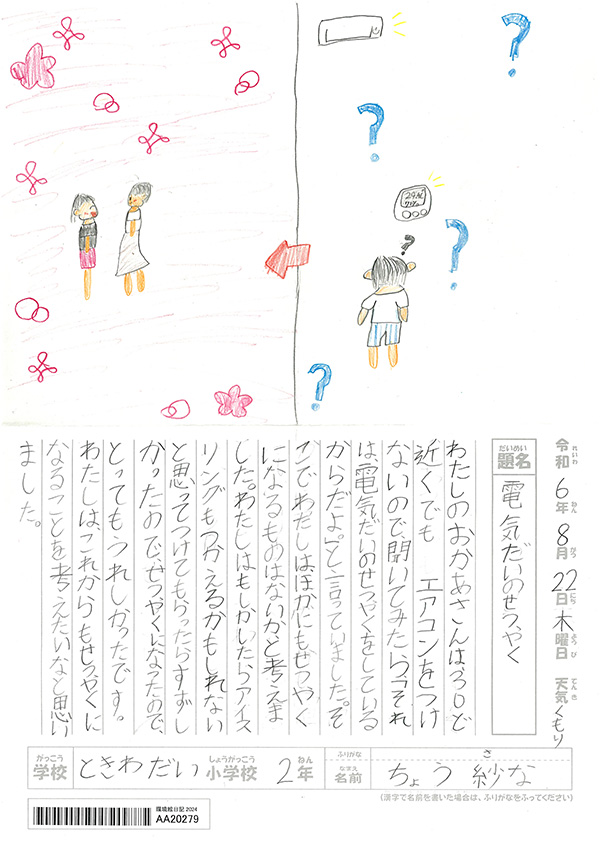 令和6年8月22日木曜日 天気くもり
れいわ ねん がつ にち ようび てんき
だいめい
題名 電気だいのせつやく
わたしのおかあさんは、30ど
近くでも エアコンをつけ
ないので、聞いてみたら、「それ
は、電気だいのせつやくをしている
からだよ。」と言っていました。そ
こでわたしは、ほかにもせつやく
になるものはないかと考えま
した。わたしはもしかしたらアイス
リングもつかえるかもしれない
と思ってつけてもらったらすずし
かったので、せつやくになったので、
とってもうれしかったです。
わたしは、これからもせつやくに
なることを考えたいなと思い
ました。
がっこう しょうがっこう ねん ふりがな さ
学校 ときわだい 小学校 2年 なまえ 名前 ちょう 紗な
(漢字で名前を書いた場合は、ふりがなをふってください)
環境絵日記 2024
AA20279